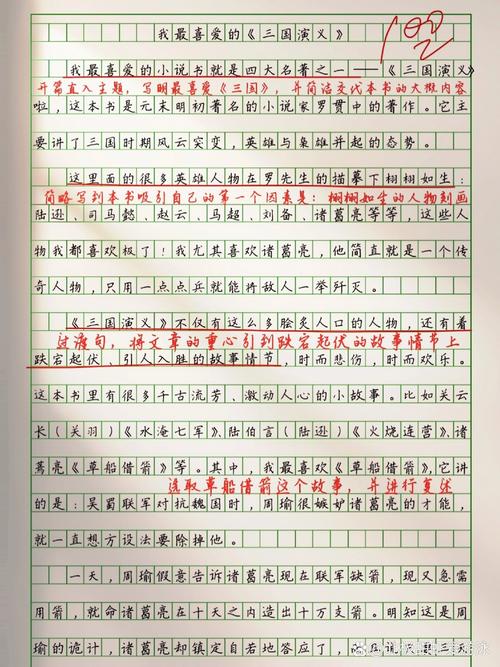 我最喜爱的《三国演义》
100
我最喜爱的小说书就是四大名著之一——《三国演义》
开篇直入主题，写明最喜爱《三国》，并简洁交代本书的大概内容
啦，这本书是元末明初著名的小说家罗贯中的著作。它主
要讲了三国时期风云突变，英雄与枭雄并起的态势。
这里面的很多英雄人物在罗先生的描摹下栩栩如生：
简略写到本书吸引自己的第一个因素是：栩栩如生的人物刻画
陆逊、司马懿、赵云、马超、刘备、诸葛亮等等，这些人
物我都喜欢极了！我尤其喜欢诸葛亮，他简直就是一个传
奇人物，只用一点点兵就能将敌人一举歼灭。
《三国演义》不仅有这么多脍炙人口的人物，还有着
过渡句，将文章的重心引到跌宕起伏的故事情节上
跌宕起伏、引人入胜的故事情节，时而悲伤，时而欢乐。
这本书里有很多千古流芳、激动人心的小故事。比如关云
长（关羽）《水淹七军》、陆伯言（陆逊）《火烧连营》、诸
葛亮《草船借箭》等。其中，我最喜欢《草船借箭》，它讲
选取草船借箭这个故事，并进行复述
的是：吴蜀联军对抗魏国时，周瑜很嫉妒诸葛亮的才能，
就一直想方设法要除掉他。
一天，周瑜假意告诉诸葛亮现在联军缺箭，现又急需
用箭，就命诸葛亮在十天之内造出十万支箭。明知这是周
瑜的诡计，诸葛亮却镇定自若地答应了，